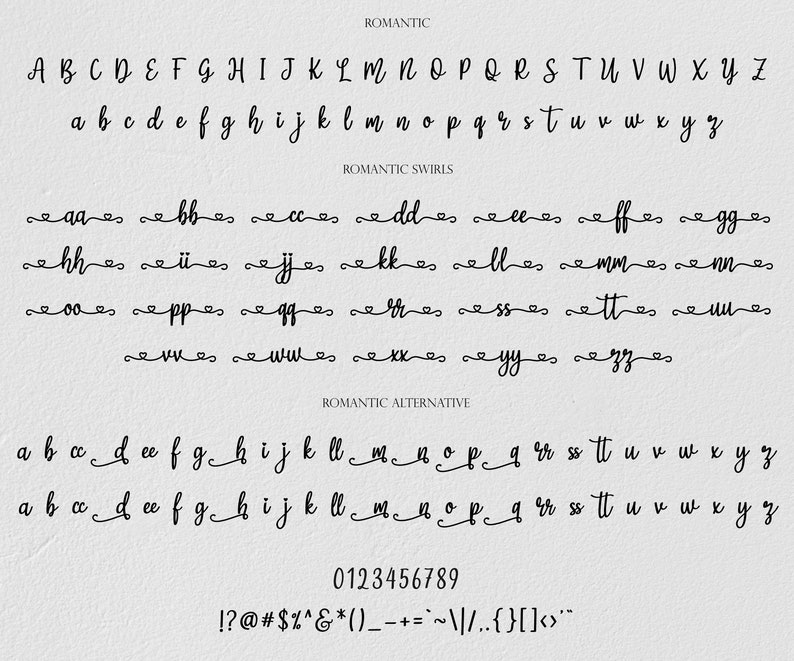 ROMANTIC
A B C D E F G H I J K L M N O P Q R S T U V W X Y Z
a b c d e f g h i j k l m n o p q r s t u v w x y z
ROMANTIC SWIRLS
aa bb cc dd ee ff gg
hh ii jj kk ll mm nn
oo pp qq rr ss tt uu
vv ww xx yy zz
ROMANTIC ALTERNATIVE
a b cc d ee f g h i j k ll m n o p q rr ss tt u v w x y z
a b cc d ee f g h i j k ll m n o p q rr ss tt u v w x y z
0123456789
!?@#$%^&*()_-+=`~\|/,.{}[]<>'"